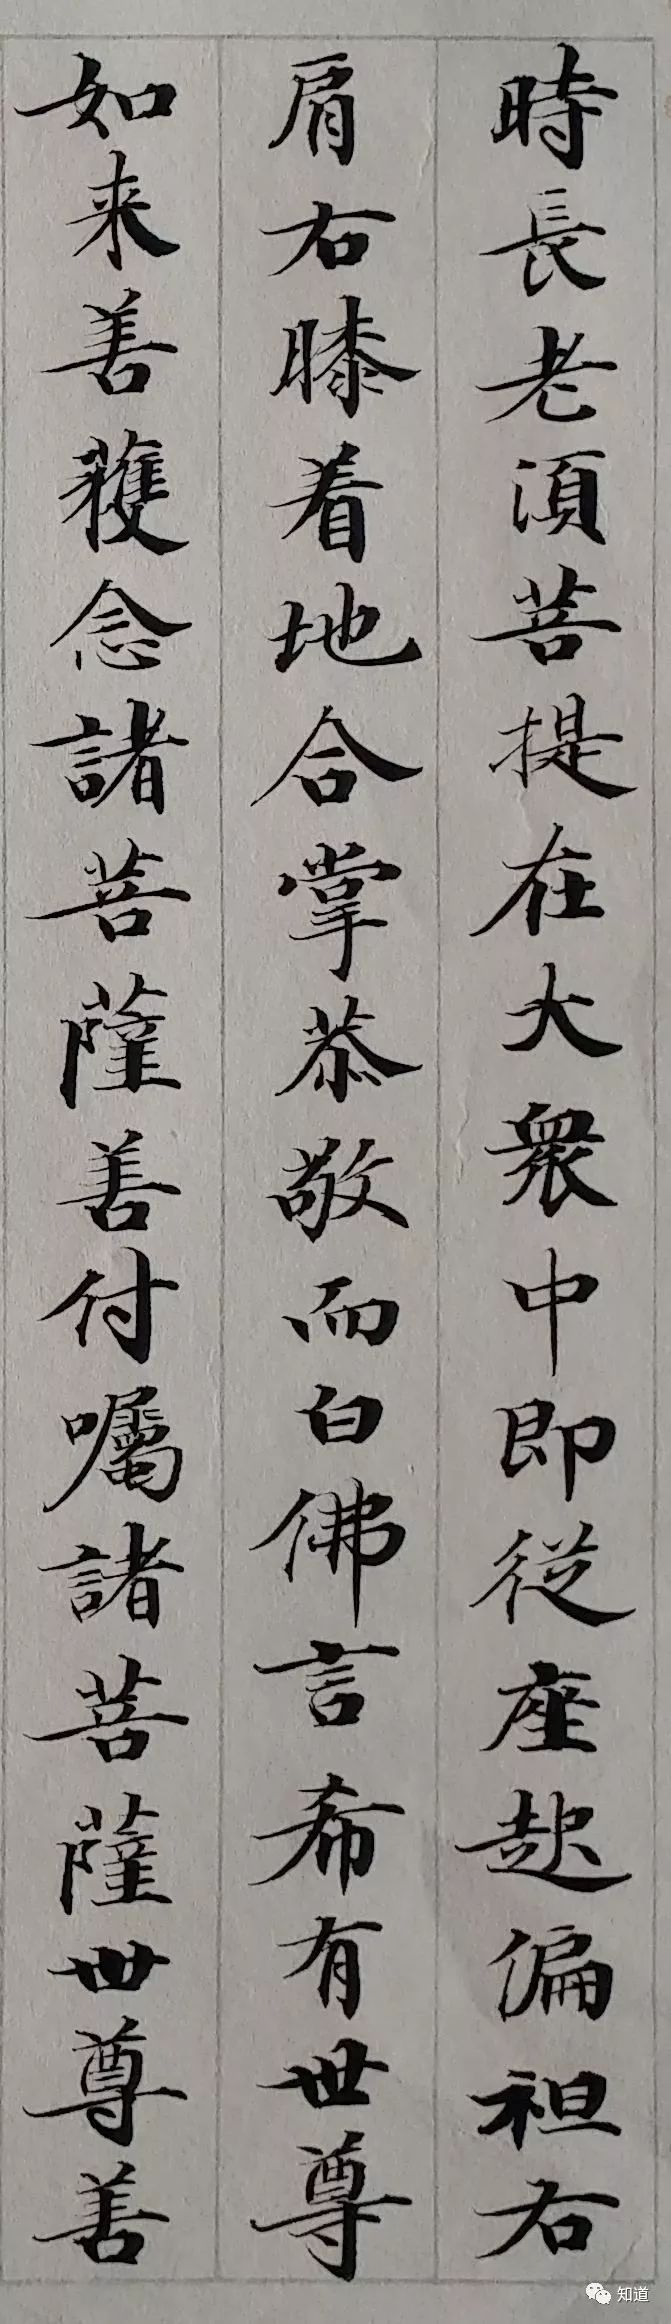 時長老湏菩提在大衆中即從座起偏袒右
肩右膝着地合掌恭敬而白佛言希有世尊
如来善護念諸菩薩善付囑諸菩薩世尊善
知道